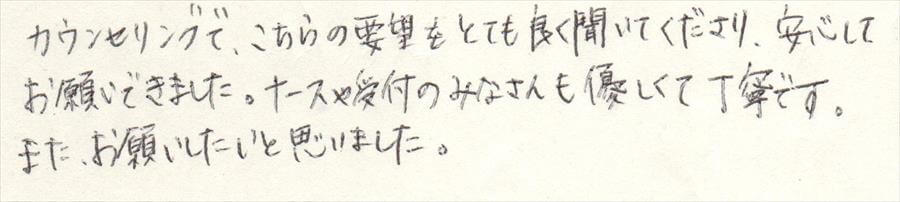 カウンセリングで、こちらの要望をとても良く聞いてくださり、安心して
お願いできました。ナースや受付のみなさんも優しくて丁寧です。
また、お願いしたいと思いました。